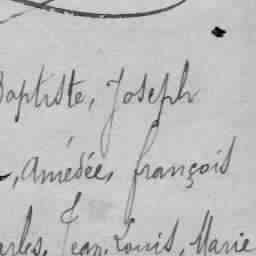 Baptiste, Joseph
, Amédée, françois
arles, Jean, Louis, Marie